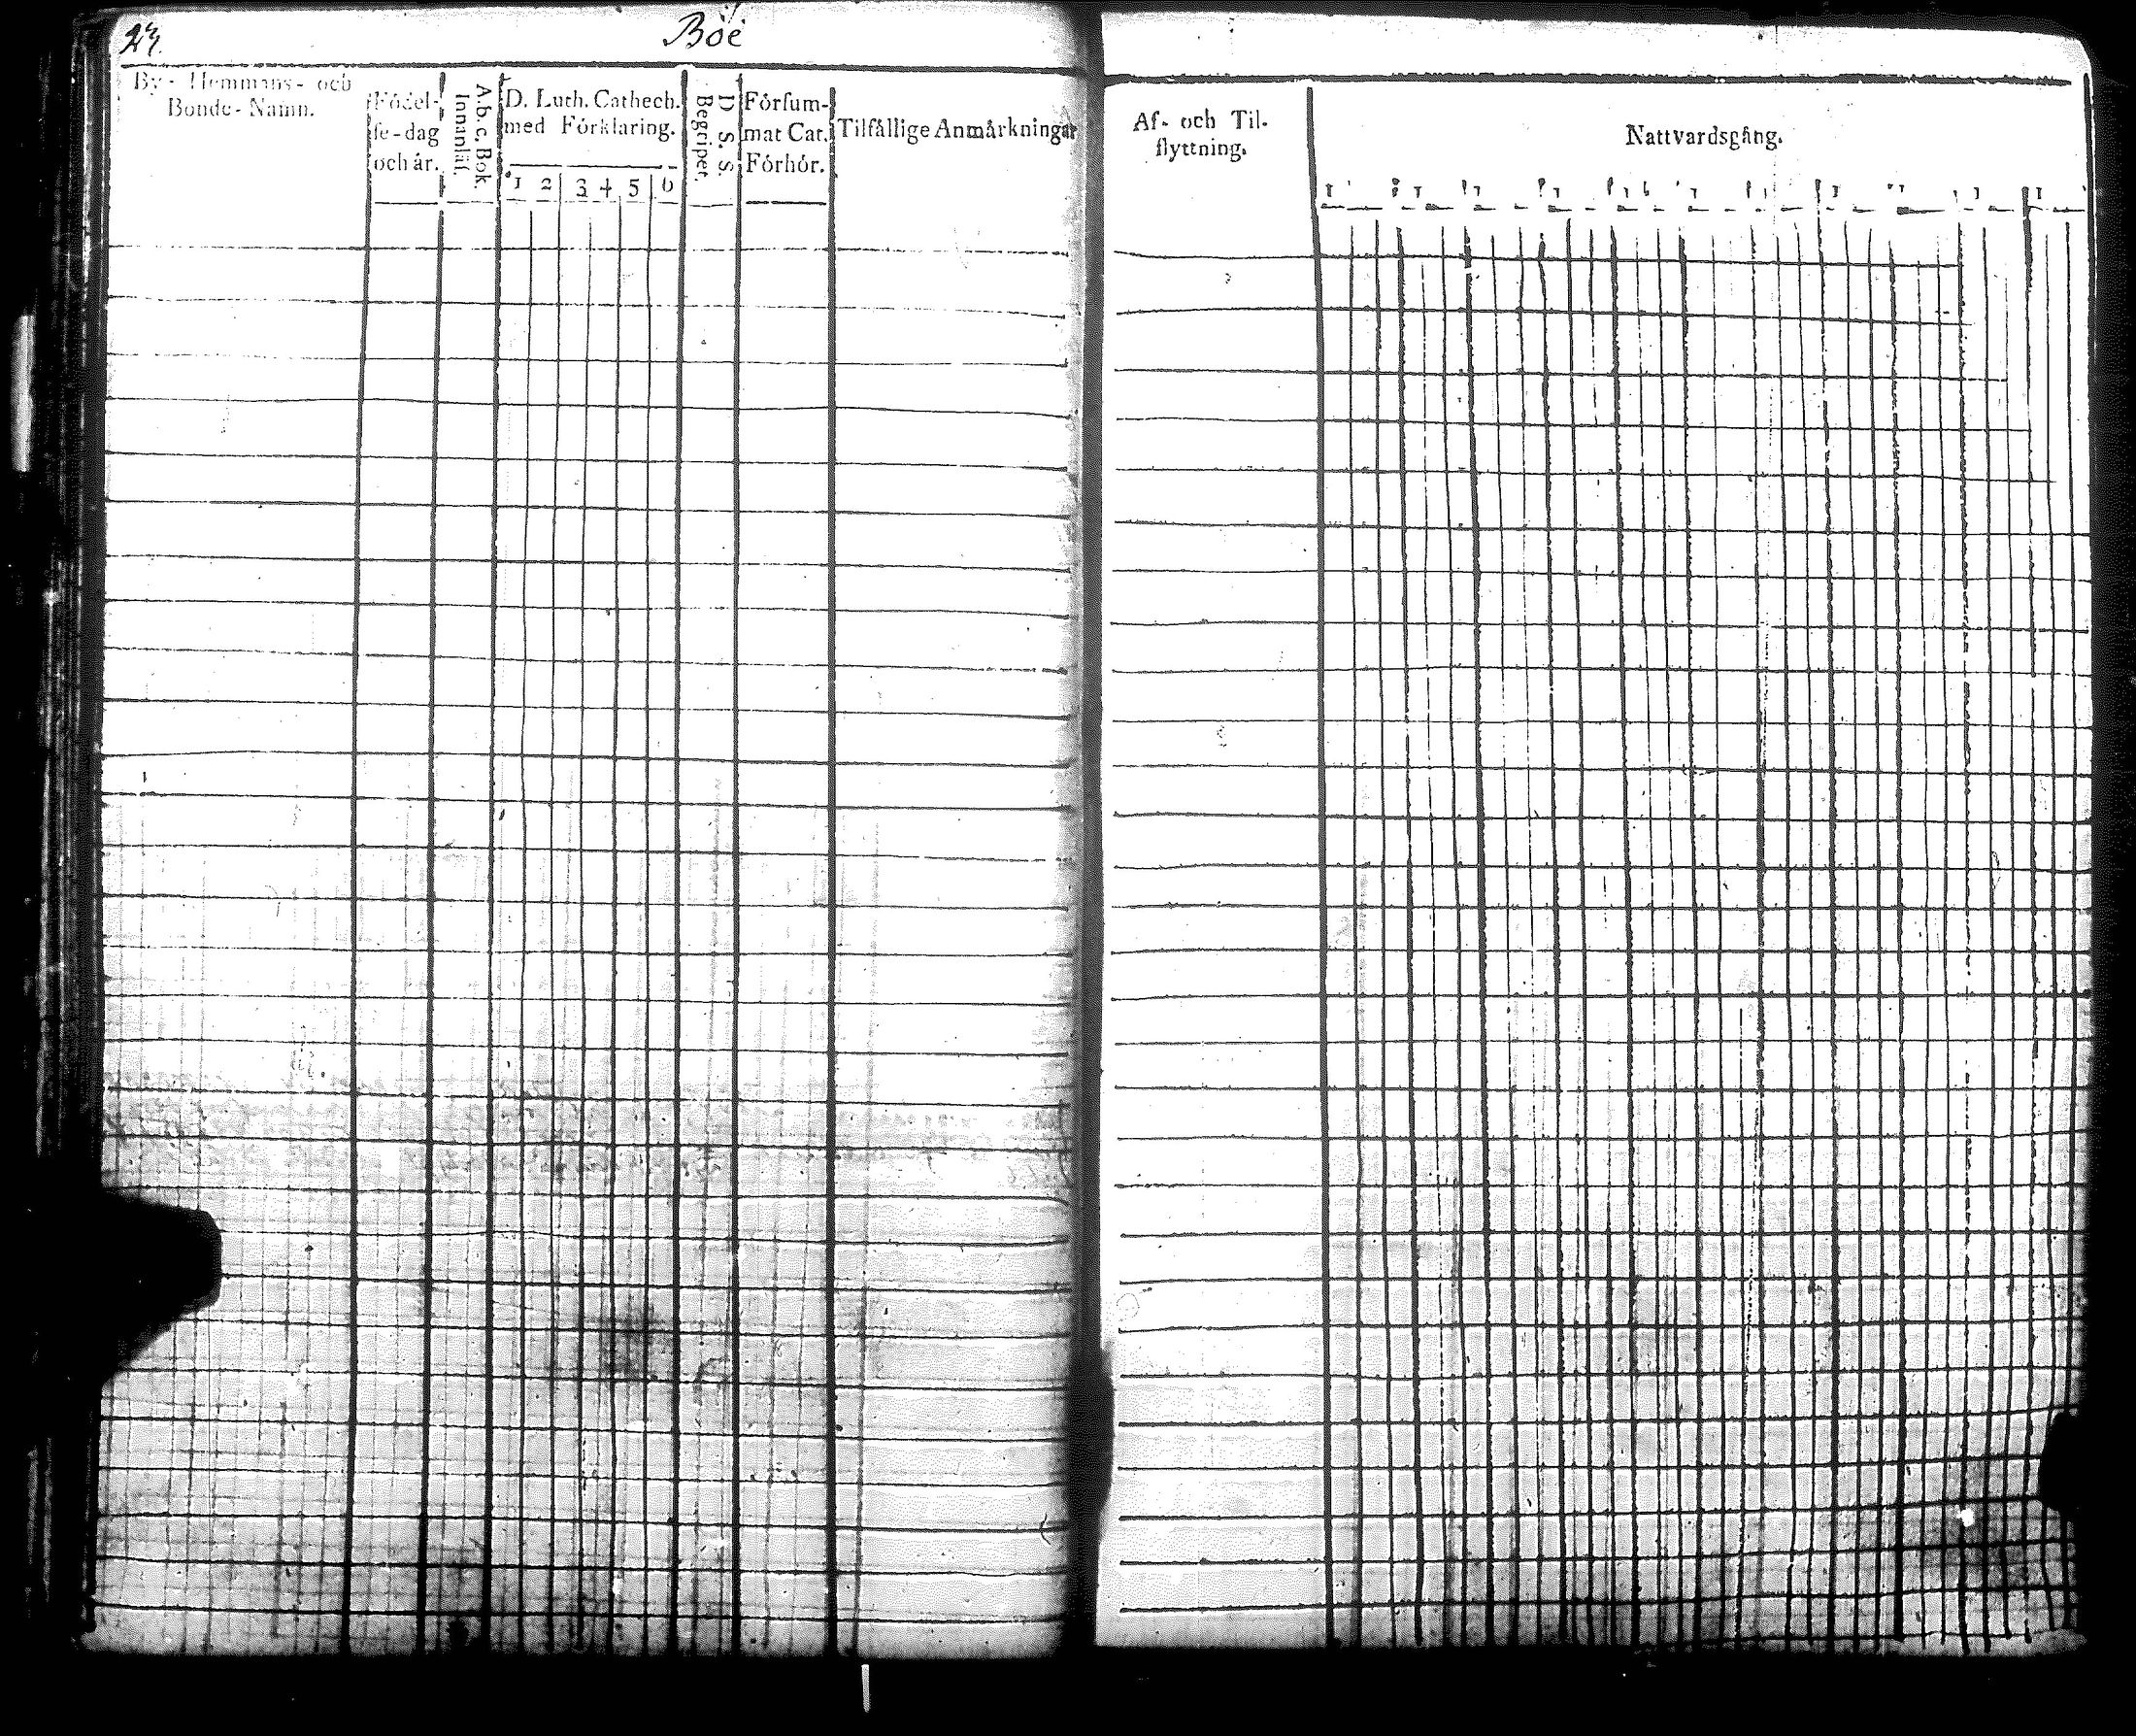 Böe
By- Hemmans- och
Bonde-Namn.
Födel-
se-dag
och år.
A.b.c. Bok.
Innanläs.
D. Luth. Cathech.
med Förklaring.
1 2 3 4 5 6
D. S. S.
Begriper.
Försum-
mat Cat.
Förhör.
Tilfällige Anmärkningar
Af- och Til-
flyttning.
Nattvardsgång.